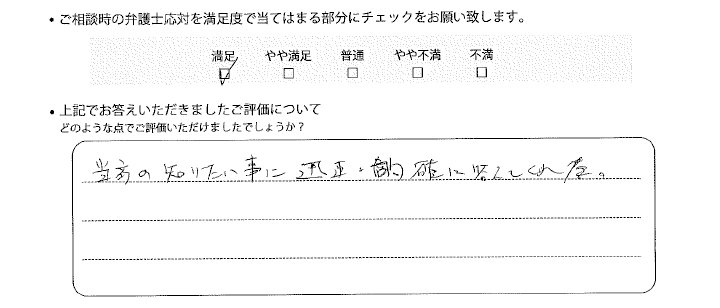 ・ご相談時の弁護士応対を満足度で当てはまる部分にチェックをお願い致します。
満足 やや満足 普通 やや不満 不満
☑ □ □ □ □
・上記でお答えいただきましたご評価について
どのような点でご評価いただけましたでしょうか?
当方の知りたい事に 正・確に答えてくれた。